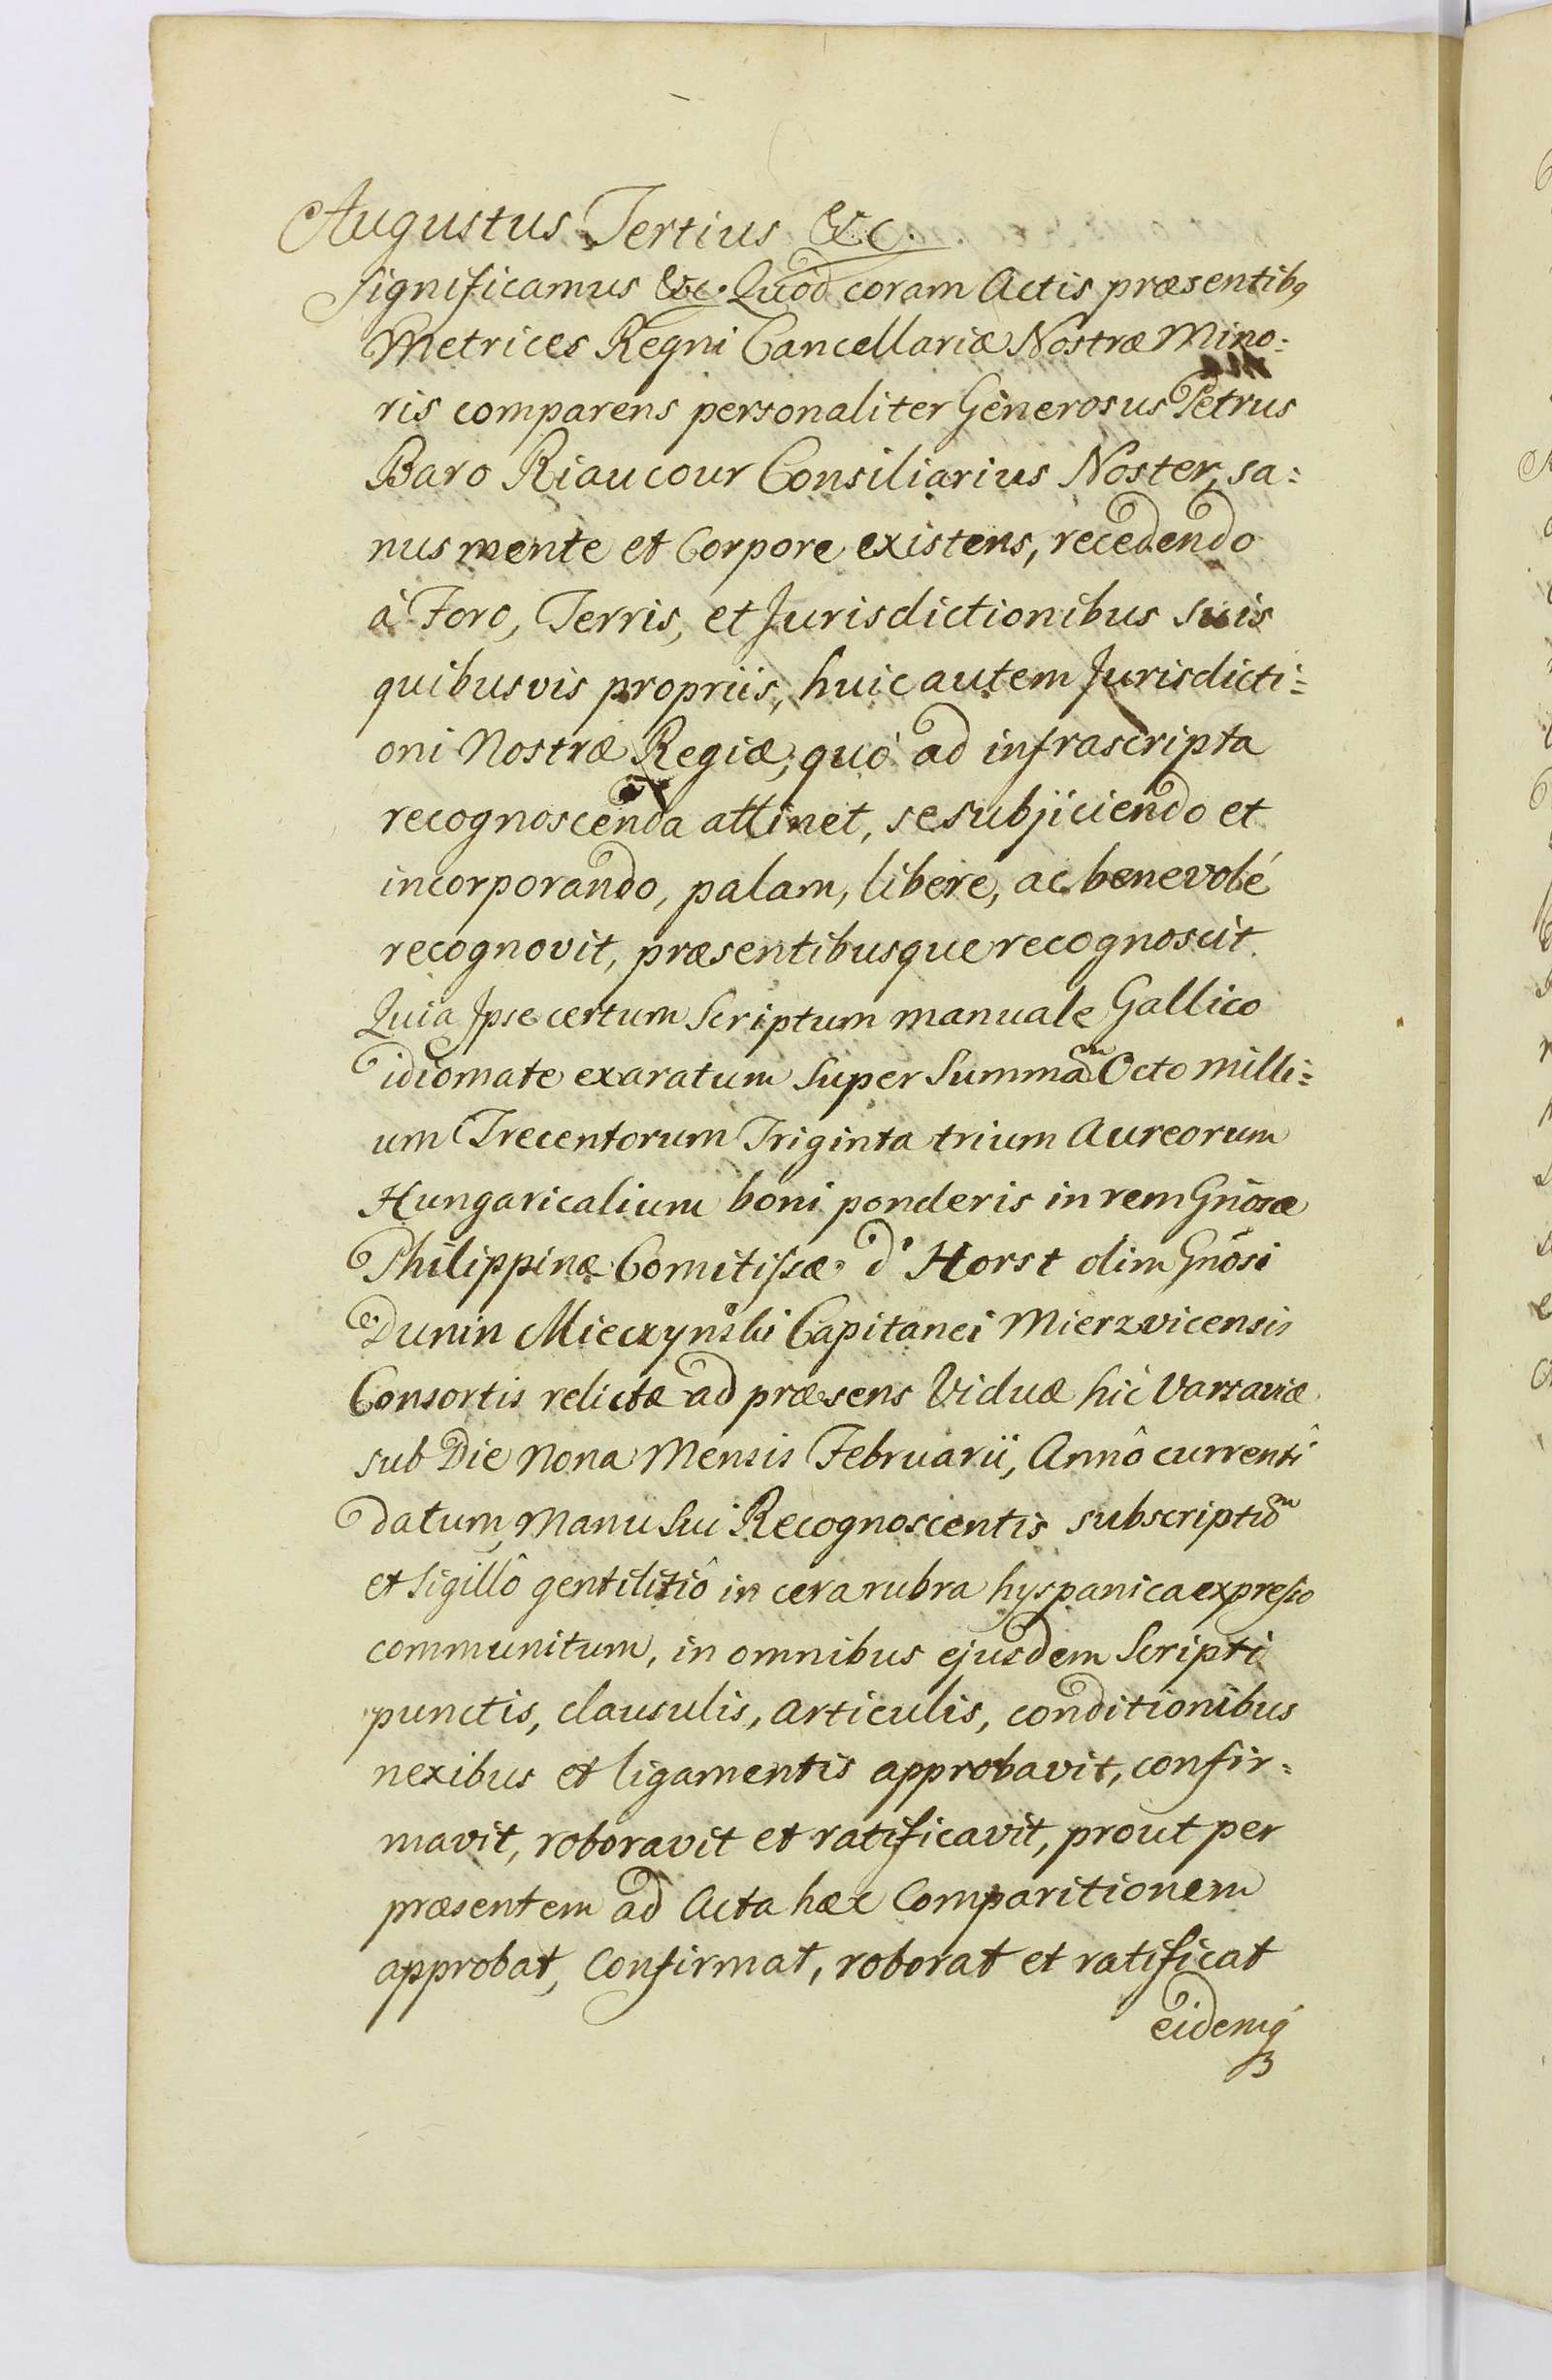 Augustus Tertius &c.
significamus &c. Quòd coram Actis præsentibq
Metrices Regni Cancellariæ Nostræ Mino:
ris comparens personaliter Generosus Petrus
Baro Riaucour Consiliarius Noster, sa:
nus mente et Corpore existens, recedendo
à Foro, Terris, et Jurisdictionibus suis
quibusvis propriis, huic autem Jurisdicti:
oni Nostræ Regiæ, quò ad infrascripta
recognoscenda attinet, se subjiciendo et
incorporando, palam, libere, ac benevolé
recognovit, præsentibusque recognoscit.
Quia Ipse certum Scriptum manuale Gallico
idiomate exaratum super Summam Octo milli:
um Trecentorum Triginta trium Aureorum
Hungaricalium boni ponderis in rem Gñosæ
Philippinæ Comitissæ d' Horst olim Gñosi
Dunin Mieczyński Capitanei Mierzvicensis
Consortis relictæ ad præsens Viduæ hic Varsaviæ
sub Die Nona Mensis Februarii, Annô currenti
datum, Manu Sui Recognoscentis subscriptiōm
et Sigillô gentilitiô in cera rubra hyspanica expresso
communitum, in omnibus ejusdem Scripti
punctis, clausulis, articulis, conditionibus
nexibus et ligamentis approbavit, confir:
mavit, roboravit et ratificavit, prout per
præsentem ad Acta hæc Comparitionem
approbat, Confirmat, roborat et ratificat
eidemq́